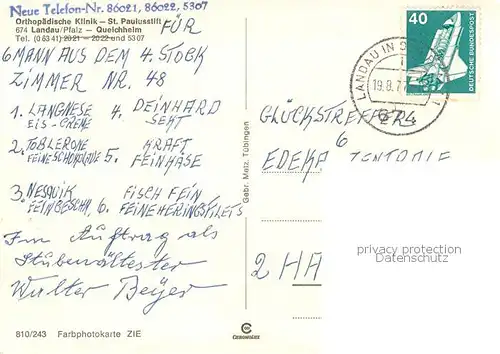 Neue Telefon-Nr. 86021, 86022, 5307
Orthopädische Klinik – St. Paulusstift
674 Landau/Pfalz – Queichheim
Tel. (0 63 41) 2021 – 2022 und 5307
FÜR
6 MANN AUS DEM 4. STOCK
ZIMMER NR. 48
1. LANGNESE
EIS-CREME
4. DEINHARD
SEKT
2. TOBLERONE
FEINE SCHOKOLADE
5. KRAFT
FEINKÄSE
3. NESQUIK
FEINGESCHM.
6. FISCH FEIN
FEINE HERINGSFILETS
Im Auftrag als
Stubenältester
Walter Beyer
810/243 Farbphotokarte ZIE
Gebr. Metz, Tübingen
CHROMOLUX
40
DEUTSCHE BUNDESPOST
LANDAU IN
19.8.77
GLÜCKSTREFFER
6
EDEKA
2 HA
privacy protection
Datenschutz